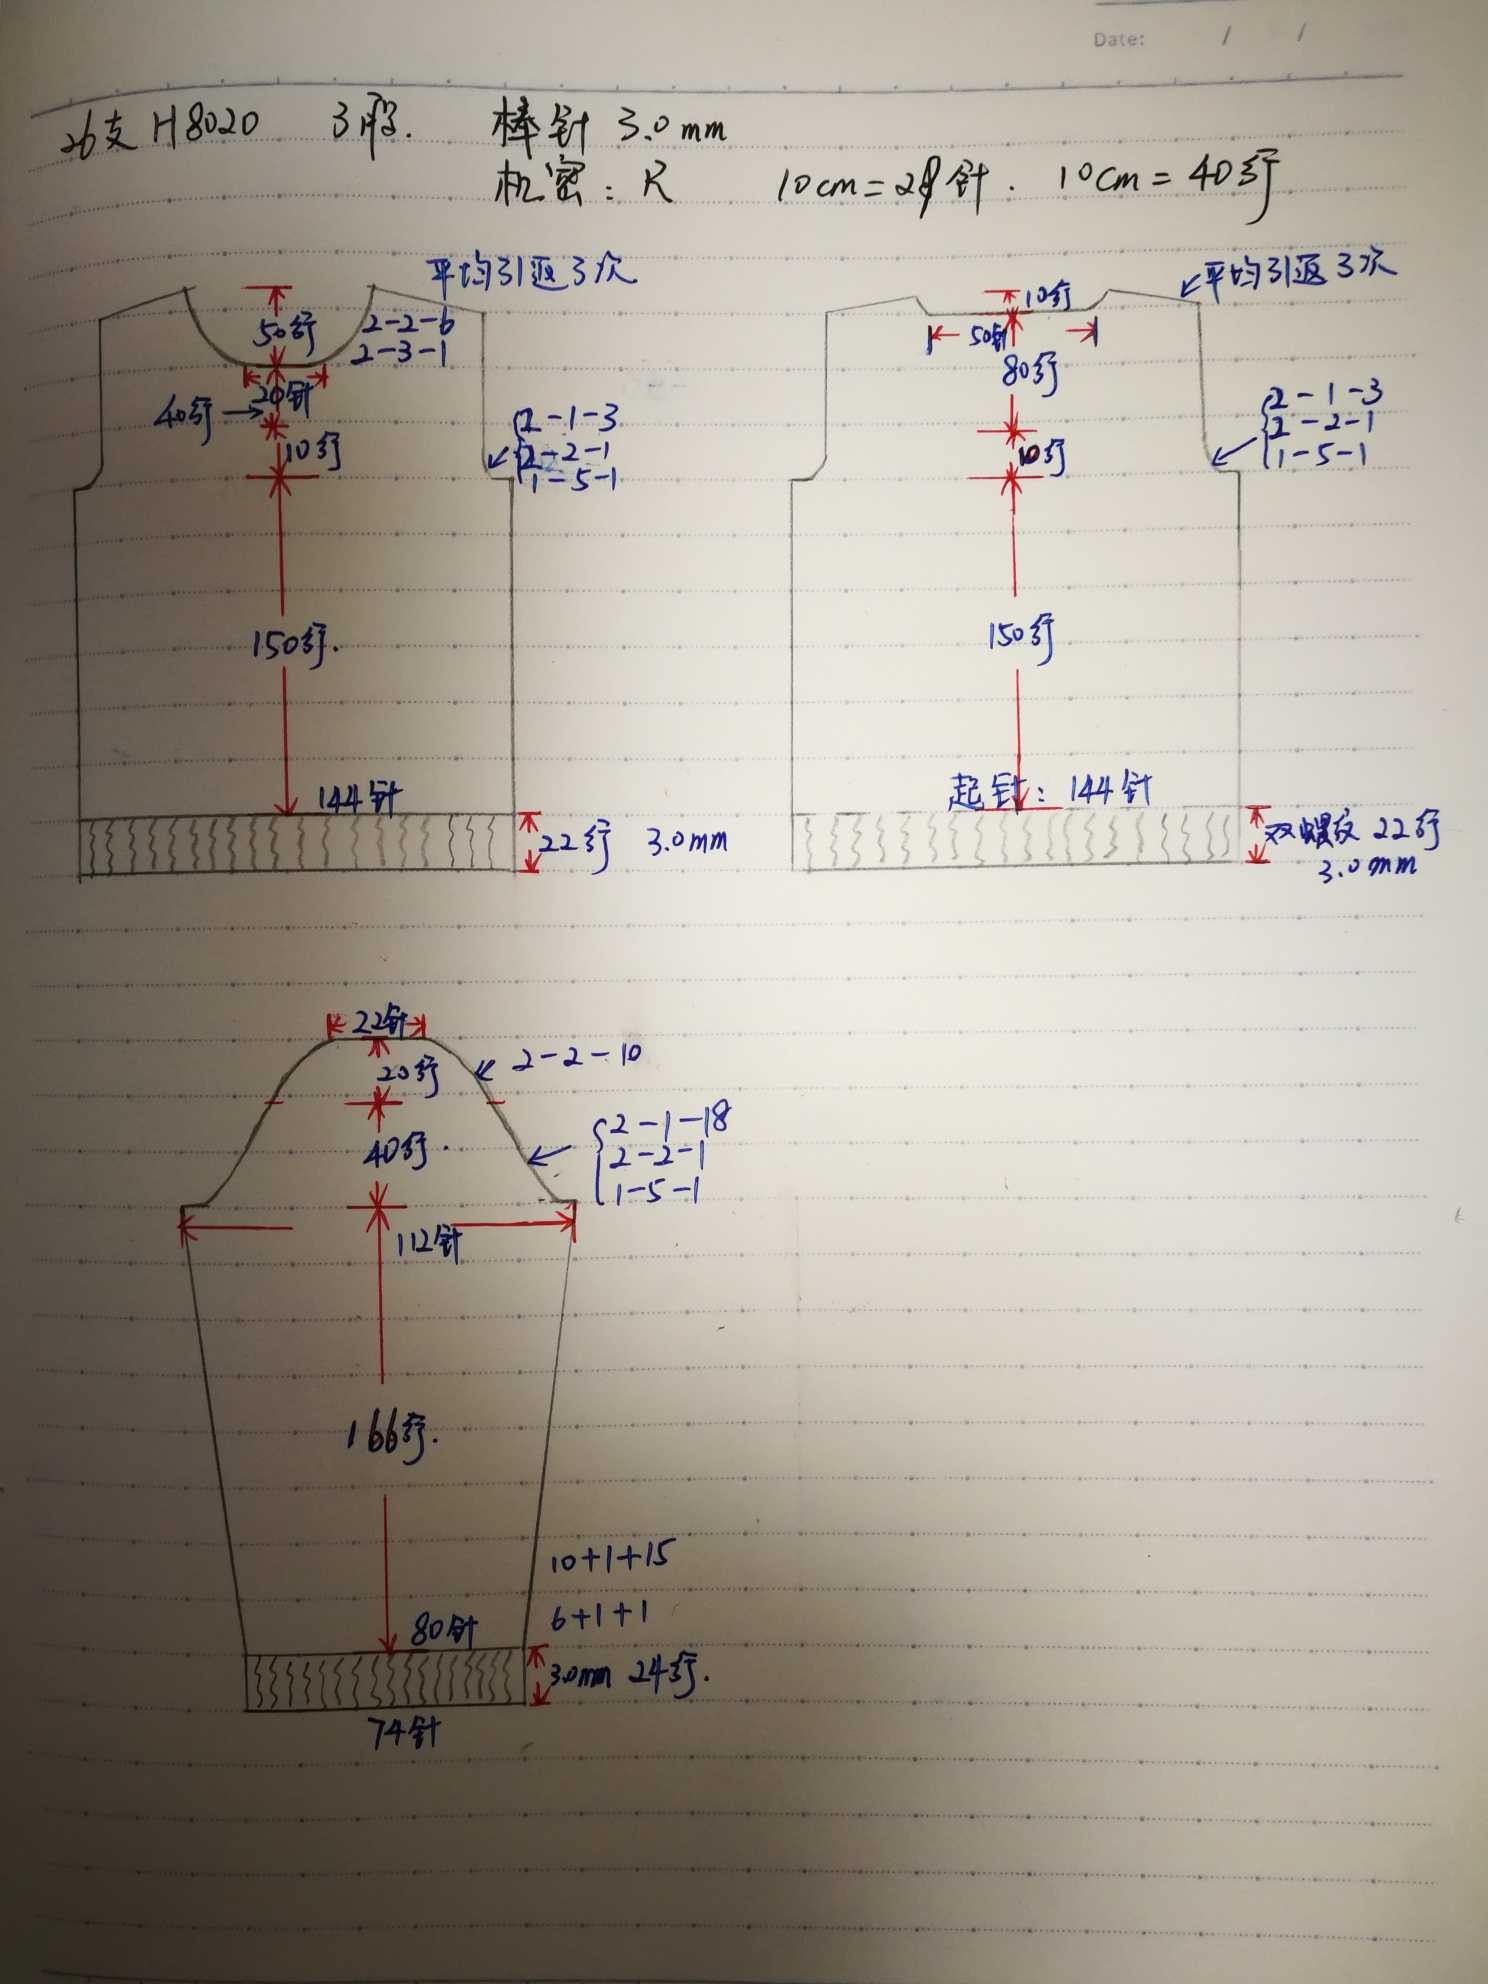 Date: / /
26支 H8020 3股. 棒针 3.0mm
机密: R 10cm=28针. 10cm=40行
平均引返3次
50行
2-2-6
2-3-1
20针
40行
10行
2-1-3
2-2-1
1-5-1
150行.
144针
22行 3.0mm
平均引返3次
10行
50针
80行
10行
2-1-3
2-2-1
1-5-1
150行
起针: 144针
双螺纹 22行
3.0mm
22针
20行
2-2-10
40行.
2-1-18
2-2-1
1-5-1
112针
166行.
10+1+15
6+1+1
80针
3.0mm 24行.
74针